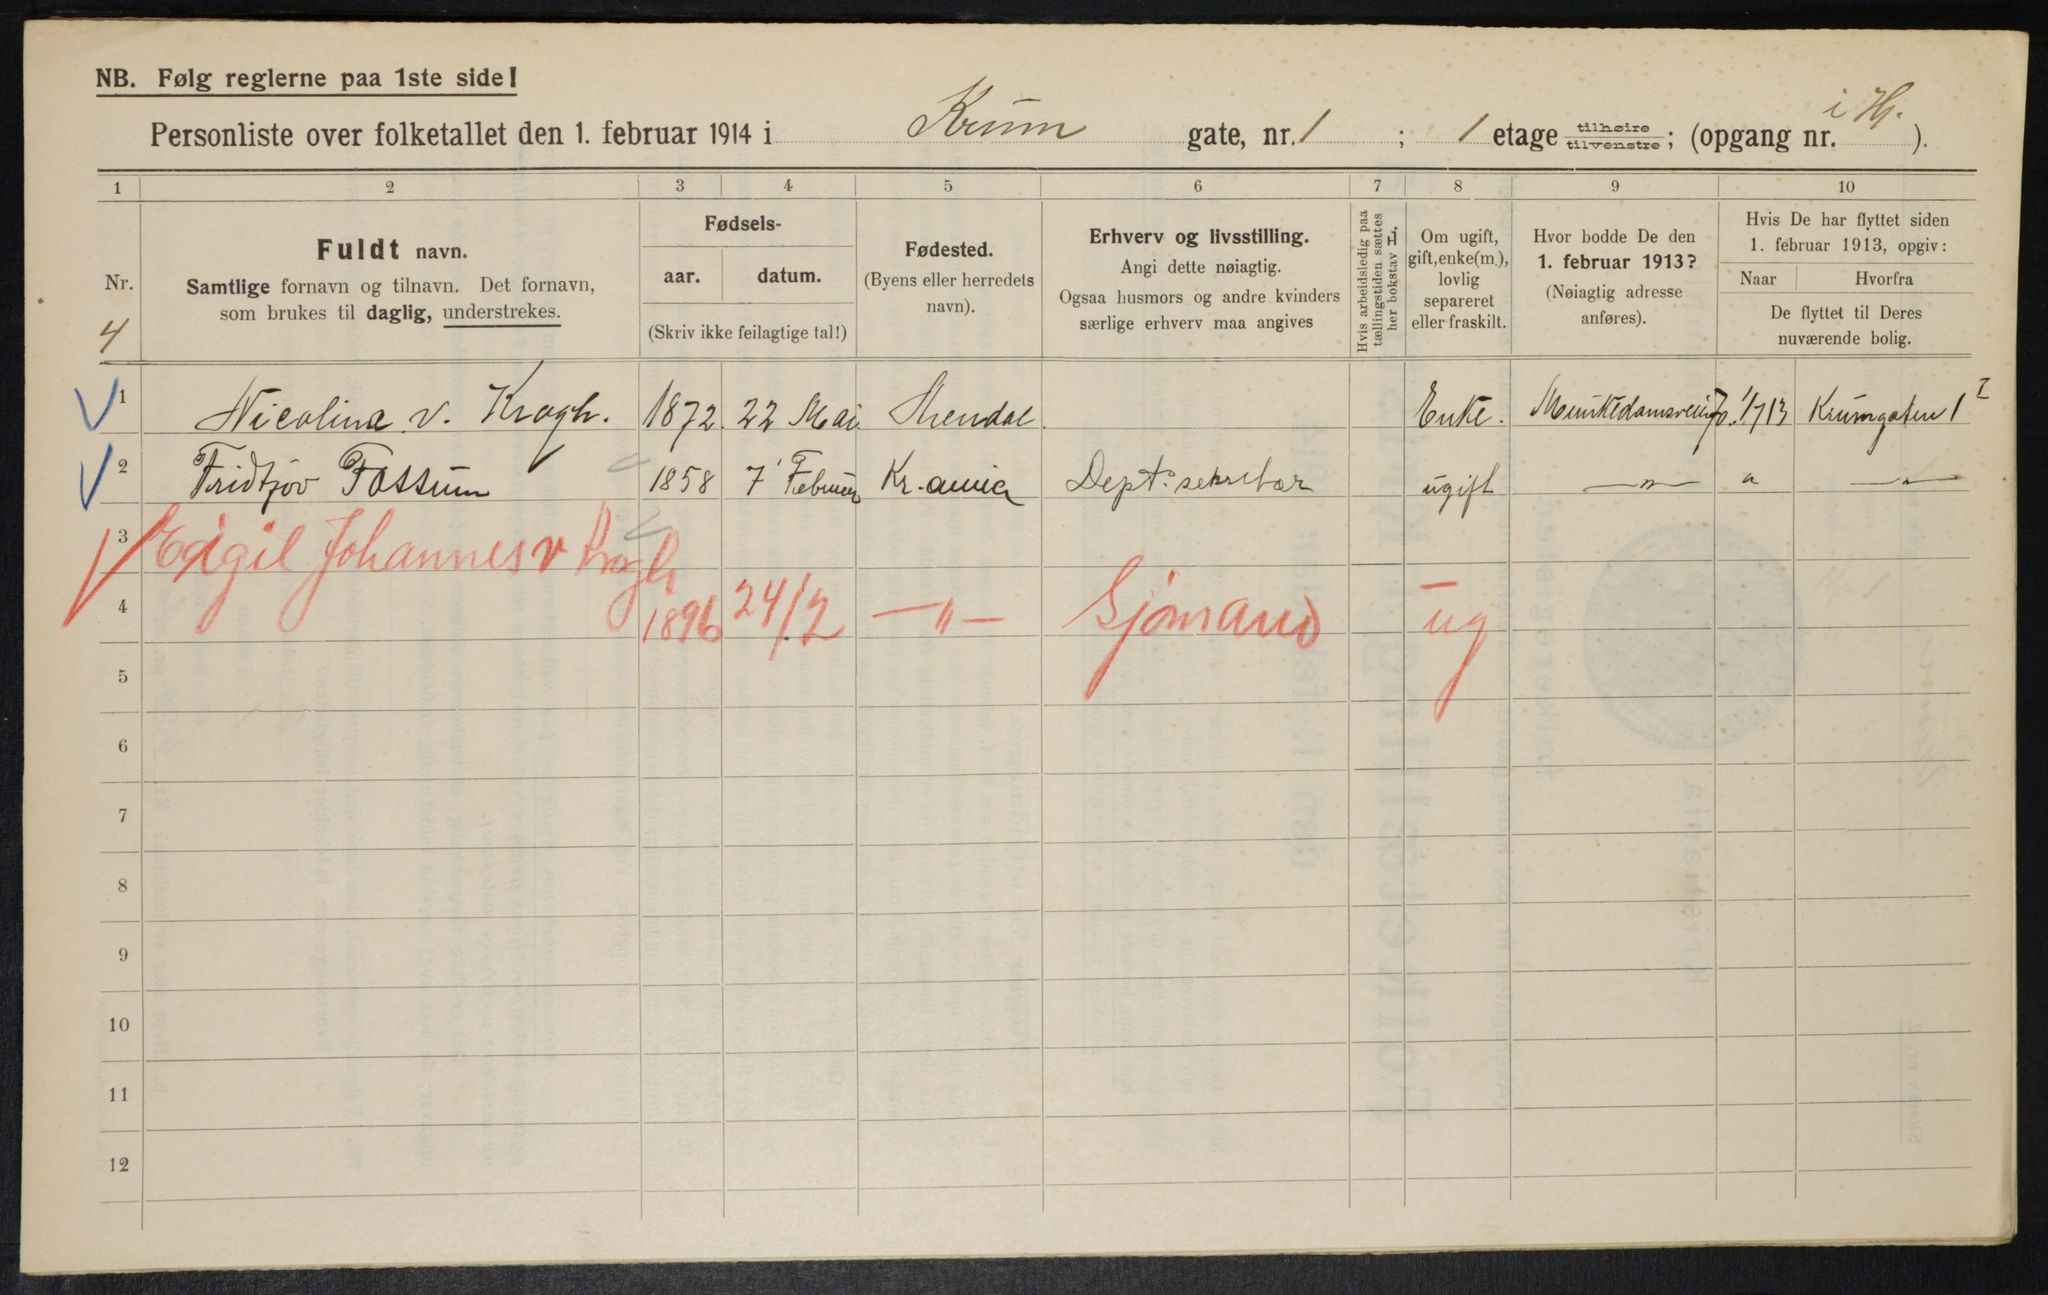 NB. Følg reglerne paa 1ste side!
Personliste over folketallet den 1. februar 1914 i Krum gate, nr. 1 ; 1 etage tilhøire tilvenstre ; (opgang nr. i H. ).
1 2 3 4 5 6 7 8 9 10
Nr.
4
Fuldt navn.
Samtlige fornavn og tilnavn. Det fornavn,
som brukes til daglig, understrekes.
Fødsels-
aar. datum.
(Skriv ikke feilagtige tal!)
Fødested.
(Byens eller herredets
navn).
Erhverv og livsstilling.
Angi dette nøiagtig.
Ogsaa husmors og andre kvinders
særlige erhverv maa angives
Hvis arbeidsledig paa
tællingstiden sættes
her bokstav L.
Om ugift,
gift, enke(m.),
lovlig
separeret
eller fraskilt.
Hvor bodde De den
1. februar 1913?
(Nøiagtig adresse
anføres).
Hvis De har flyttet siden
1. februar 1913, opgiv:
Naar Hvorfra
De flyttet til Deres
nuværende bolig.
1 Nicolina v. Krogh. 1872 22 Mai Arendal Enke. Munkedamsvei 1/7 13 Krumgaten 1 I
2 Fridtjov Fossum 1858 7 Februar Kr.ania Dept. sekretær ugift —"— " —"—
3 Eigil Johannes v Krogh
4 1896 24/2 —"— Sjømand ug
5
6
7
8
9
10
11
12